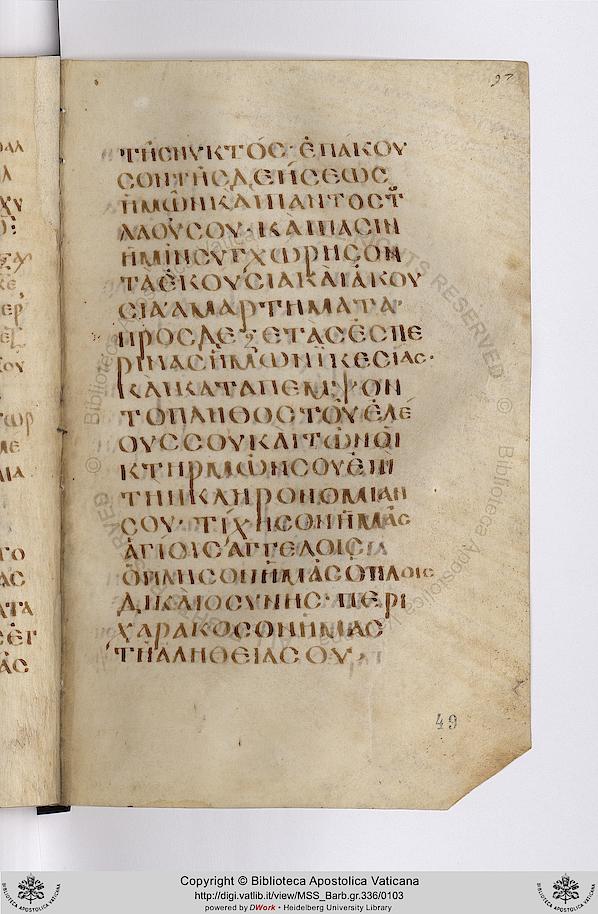 97
τῆς νυκτός· ἐπάκου
σον τῆς δεήσεως
ἡμῶν καὶ παντὸς τοῦ
λαοῦ σου· καὶ πᾶσιν
ἡμῖν συγχώρησον
τὰ ἑκούσια καὶ ἀκού
σια ἁμαρτήματα·
πρόσδεξε τὰς ἑσπε
ρινὰς ἡμῶν ἱκεσίας·
καὶ κατάπεμψον
τὸ πλῆθος τοῦ ἐλέ
ους σου καὶ τῶν οἰ
κτηρμῶν σου ἐπὶ
τὴν κληρονομίαν
σου· τίχησον ἡμᾶς
ἁγίοις ἀγγέλοις
ὅπλησον ἡμᾶς ὅπλοις
δικαιοσύνης· περι
χαράκοσον ἡμᾶς
τῆ ἀληθεία σου·
49
Copyright © Biblioteca Apostolica Vaticana
http://digi.vatlib.it/view/MSS_Barb.gr.336/0103
powered by DWork • Heidelberg University Library